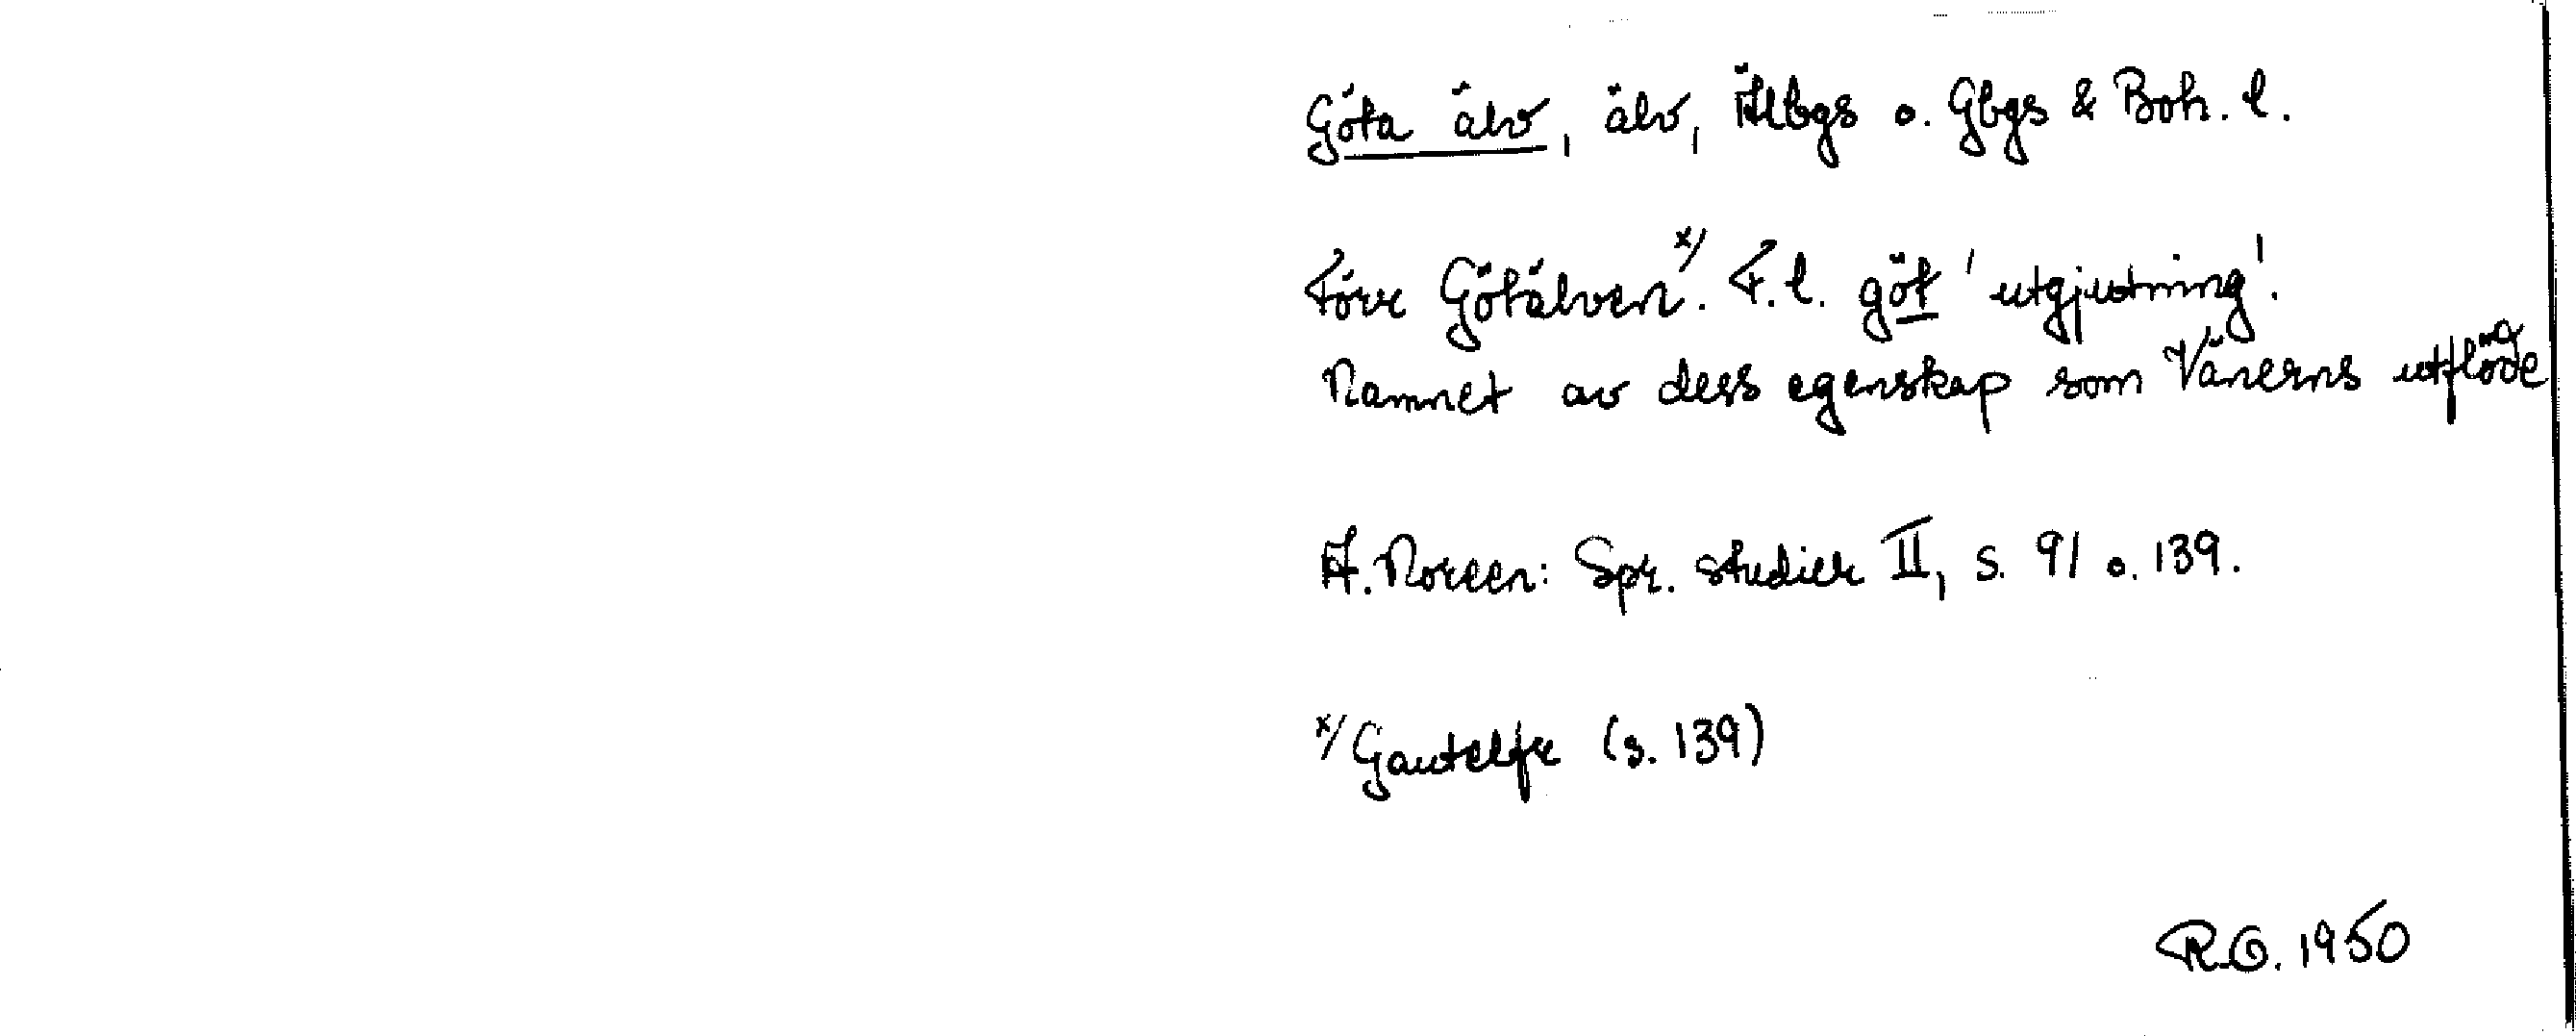 Göta älv, älv, Älbgs o. Gbgs & Boh. l.
Förr Götälven x/. F.l. göt 'utgjutning'.
Namnet av dess egenskap som Vänerns utflöde
A. Noreen: Spr. studier II, s. 91 o. 139.
x/ Gautelfr (s. 139)
R.G. 1950